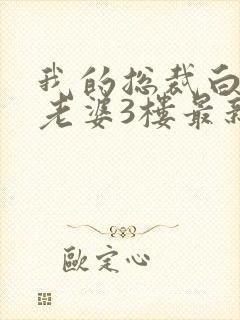 我的总裁白
老婆3楼最新
歐定心